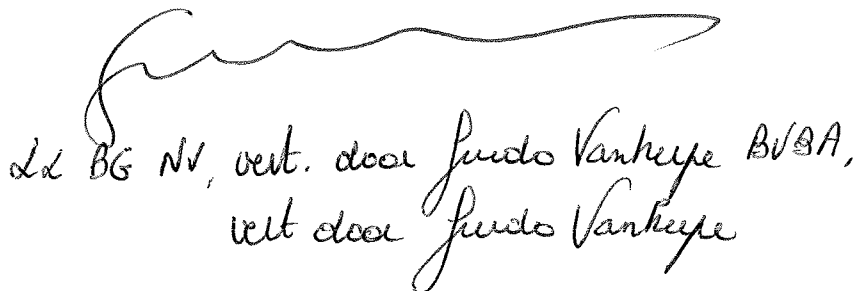 LL BG NV, vert. door Guido Vanherpe BVBA,
vert door Guido Vanherpe